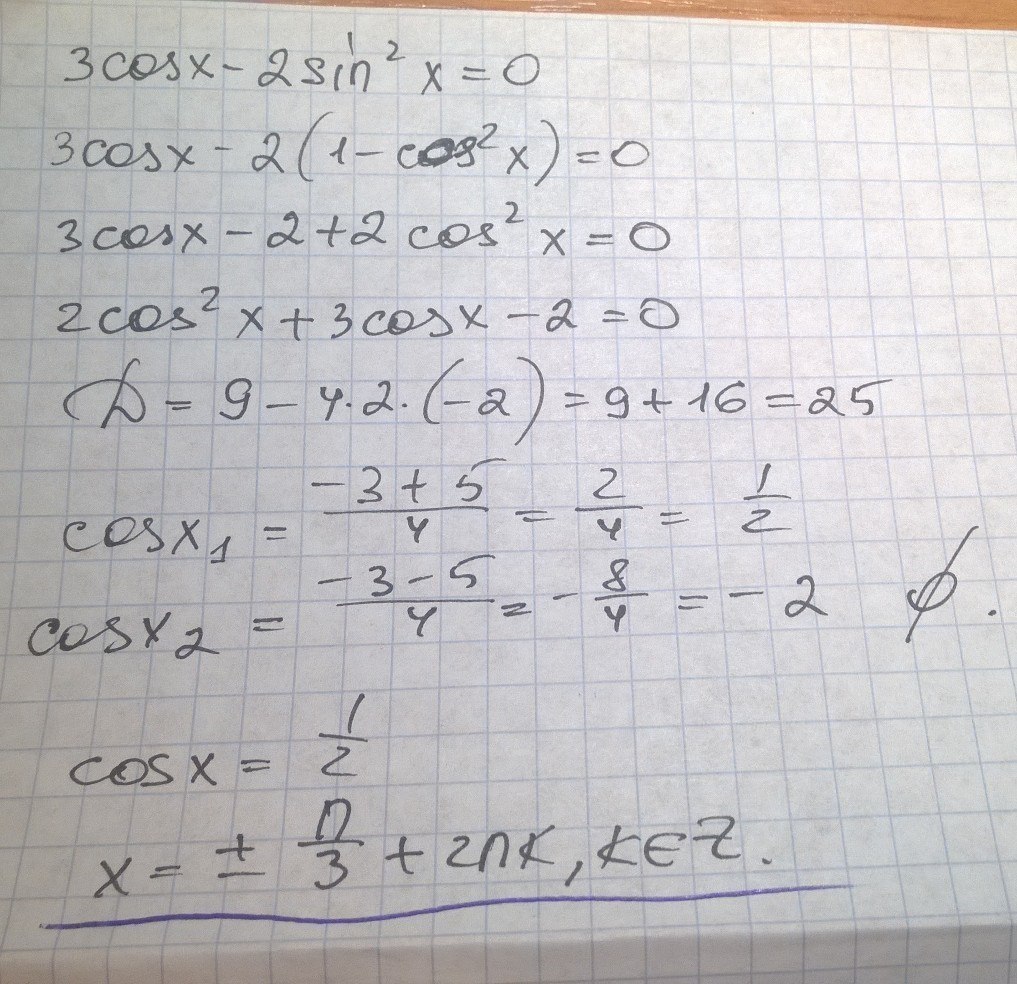 3cosx - 2sin² x = 0
3cosx - 2(1 - cos² x) = 0
3cosx - 2 + 2 cos² x = 0
2cos² x + 3cosx - 2 = 0
D = 9 - 4·2·(-2) = 9 + 16 = 25
cosx₁ = (-3 + 5)/4 = 2/4 = 1/2
cosx₂ = (-3 - 5)/4 = -8/4 = -2 ∅.
cosx = 1/2
x = ± π/3 + 2πk, k∈Z.